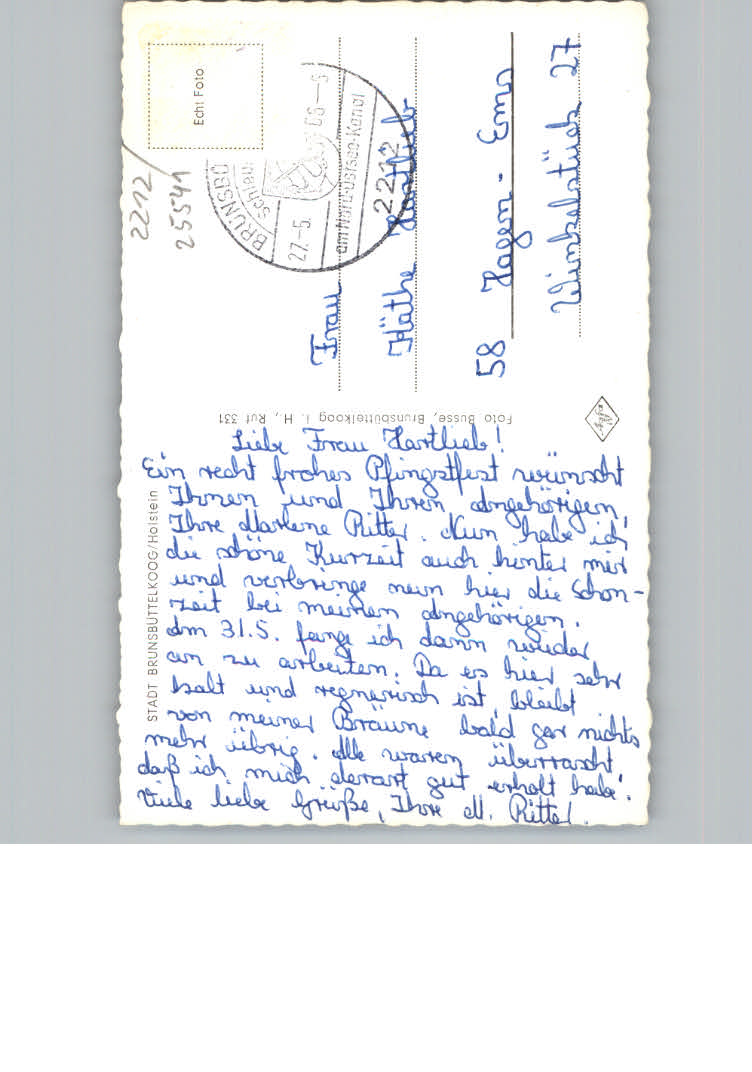 Liebe Frau Hartlieb!
Ein recht frohes Pfingstfest wünscht
Ihnen und Ihren Angehörigen,
Ihre Marlene Ritter. Nun habe ich
die schöne Kurzeit auch hinter mir
und verbringe nun hier die Schon-
zeit bei meinen Angehörigen.
Am 31.5. fange ich dann wieder
an zu arbeiten. Da es hier sehr
kalt und regnerisch ist, bleibt
von meiner Bräune bald gar nichts
mehr übrig. Alle waren überrascht
daß ich mich derart gut erholt habe!
Viele liebe Grüße, Ihre M. Ritter.
STADT BRUNSBÜTTELKOOG/Holstein
Foto Busse, Brunsbüttelkoog i. H., Ruf 331
Agfa
Echt Foto
2212
25541
BRUNSBÜ
Schleu
27.-5. 68-8
am Nord-Ostsee-Kanal
2212
Frau
Käthe Hartlieb
58 Hagen - Ems
Winkelstück 27